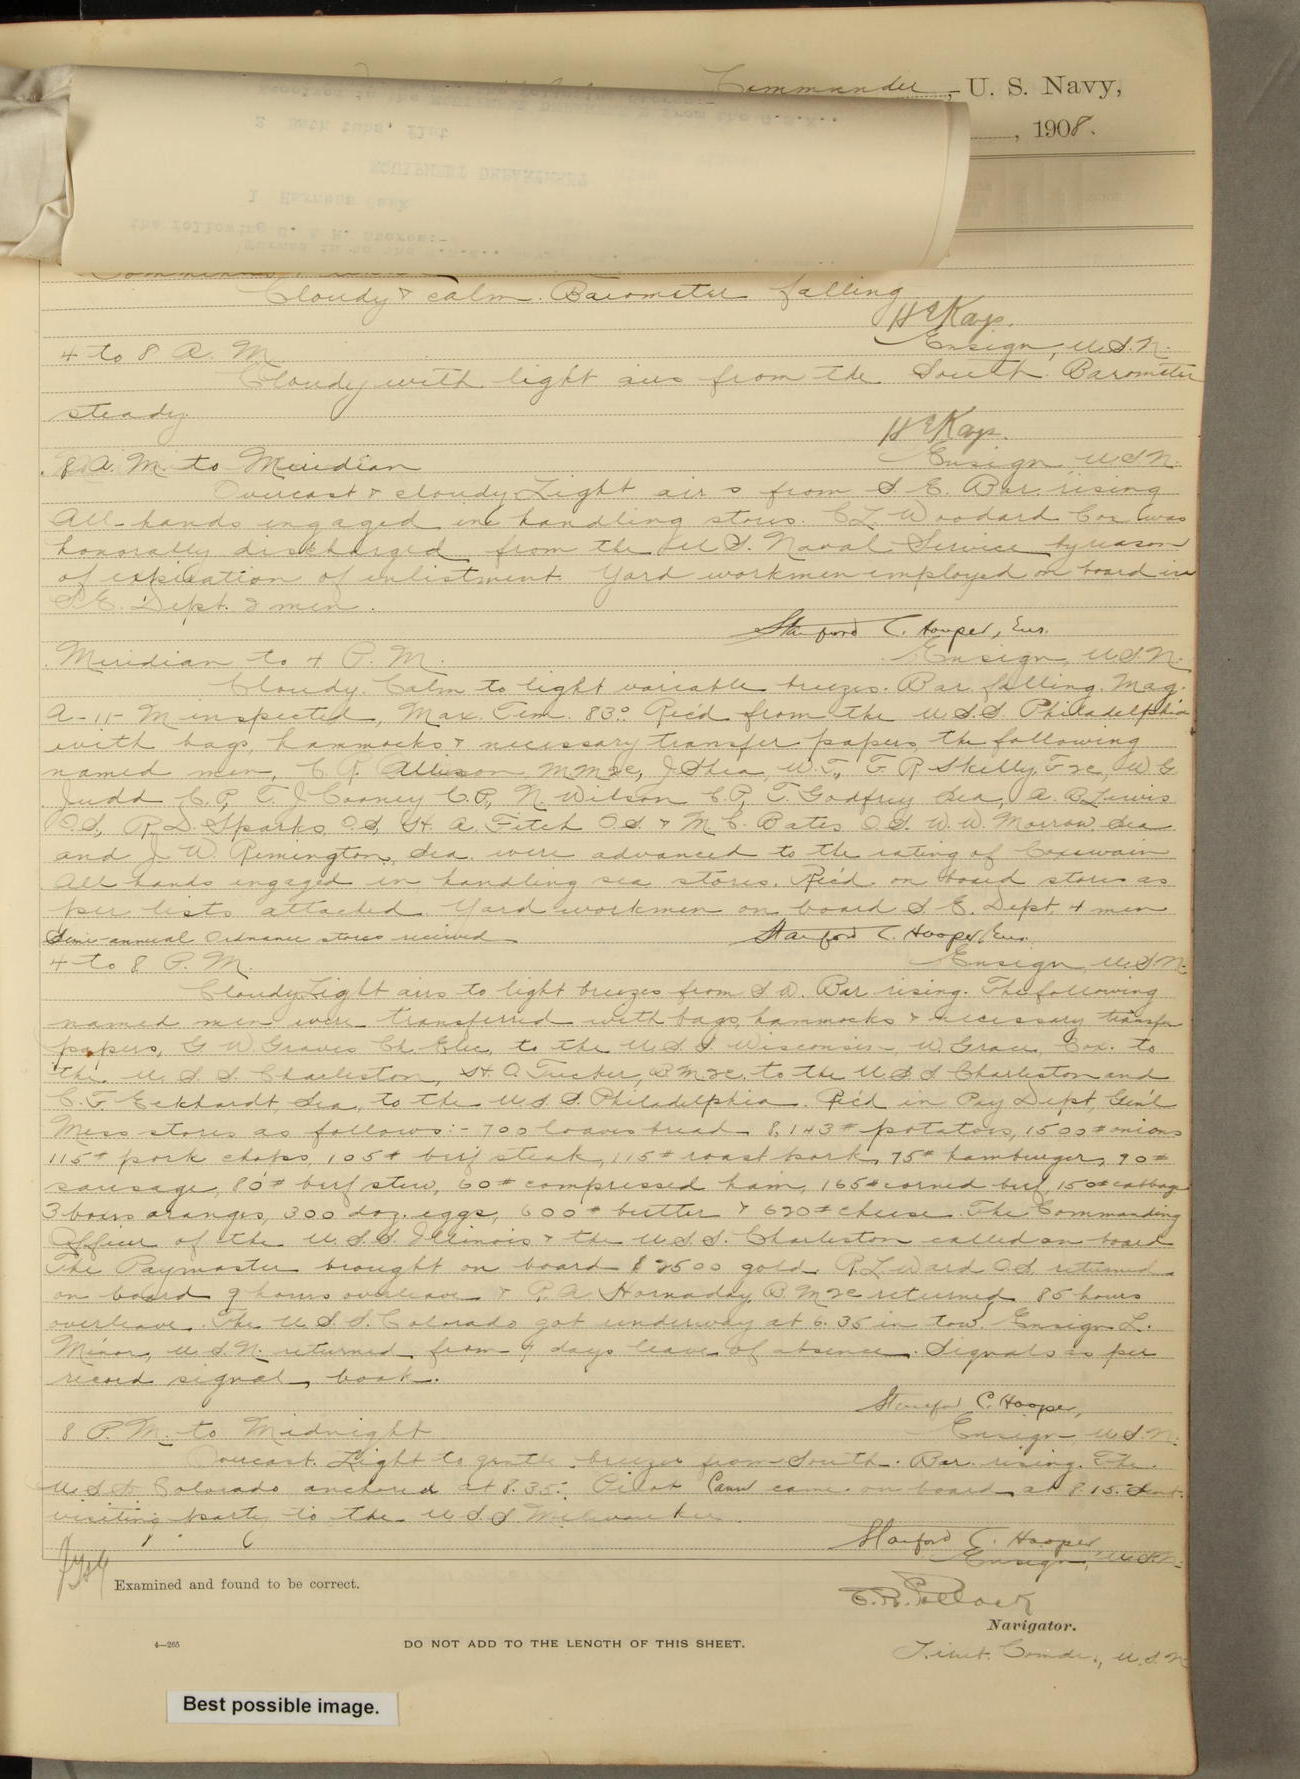 Commander, U. S. Navy,
, 1908.
Cloudy & calm. Barometer falling
H E Kays.
Ensign, U.S.N.
4 to 8 A. M.
Cloudy with light airs from the South. Barometer
steady.
H E Kays.
Ensign U S N.
8 A. M. to Meridian
Overcast & cloudy. Light airs from S. E. Bar. rising
All hands engaged in handling stores. C L Woodard Cox was
honorally discharged from the U S. Naval Service by reason
of expiration of enlistment. Yard workmen employed on board in
S. E. Dept. 2 men.
Stanford C. Hooper,
Ensign, U.S.N.
Meridian to 4 P. M.
Cloudy. Calm to light variable breezes. Bar. falling. Mag.
A-11-M inspected, Max. Tem. 83°. Rec'd from the U.S.S Philadelphia
with bags, hammocks & necessary transfer papers, the following
named men, C. R. Allison M.M.2c, J. Shea, W.T., F R Skelly, F2c, W. G
Judd C.P, T. J Cooney C.P., N. Wilson C.P, T. Godfrey Sea, A. B Lewis
O.S, R. D. Sparks O.S, H. A. Fitch O.S. & M. C. Bates O.S. W. W. Morrow Sea
and J. W. Remington, Sea. were advanced to the rating of Coxswain
All hands engaged in handling sea stores. Rec'd on board stores as
per lists attached. Yard workmen on board S. E. Dept. 4 men
Semi-annual Ordnance stores received
Stanford C. Hooper
Ensign, U.S.N.
4 to 8 P. M.
Cloudy. Light airs to light breezes from S W. Bar rising. The following
named men were transferred with bags, hammocks & necessary transfer
papers, G W. Graves Ch. Elec, to the U.S.S Wisconsin, W. Grace, Cox. to
the U. S. S Charleston, H. O. Tucker, B M 2c. to the U S S Charleston and
C. F. Eckhardt, Sea, to the U S S. Philadelphia. Rec'd in Pay Dept, Gen'l
Mess stores as follows:- 700 loaves bread 8,143# potatoes, 1500# onions
115# pork chops, 105# beef steak, 115# roast pork, 75# hamburger, 90#
sausage, 80# beef stew, 60# compressed ham, 165# corned beef, 150# cabbage
3 boxes oranges, 300 doz. eggs, 600# butter & 620# cheese. The Commanding
Officer of the U.S.S. Illinois & the U S S. Charleston called on board
The Paymaster brought on board $ 2500 gold. R. L Ward O.S. returned
on board 9 hours overleave & P. A. Hornaday B M 2c returned 85 hours
overleave. The U S. S. Colorado got underway at 6.35 in tow. Ensign L.
Minor, U.S.N. returned from 4 days leave of absence. Signals as per
record signal book.
Stanford C. Hooper,
Ensign U.S.N.
8 P. M. to Midnight
Overcast. Light to gentle breezes from South. Bar. rising. The
U.S.S. Colorado anchored at 8.35. Pilot came on board at 8.15. Sent
visiting party to the U S S Milwaukee.
Stanford C. Hooper
Ensign, U.S.N.
Examined and found to be correct.
C. R. Pollock
Navigator.
4—265
DO NOT ADD TO THE LENGTH OF THIS SHEET.
Lieut. Comdr., U.S.N
Best possible image.